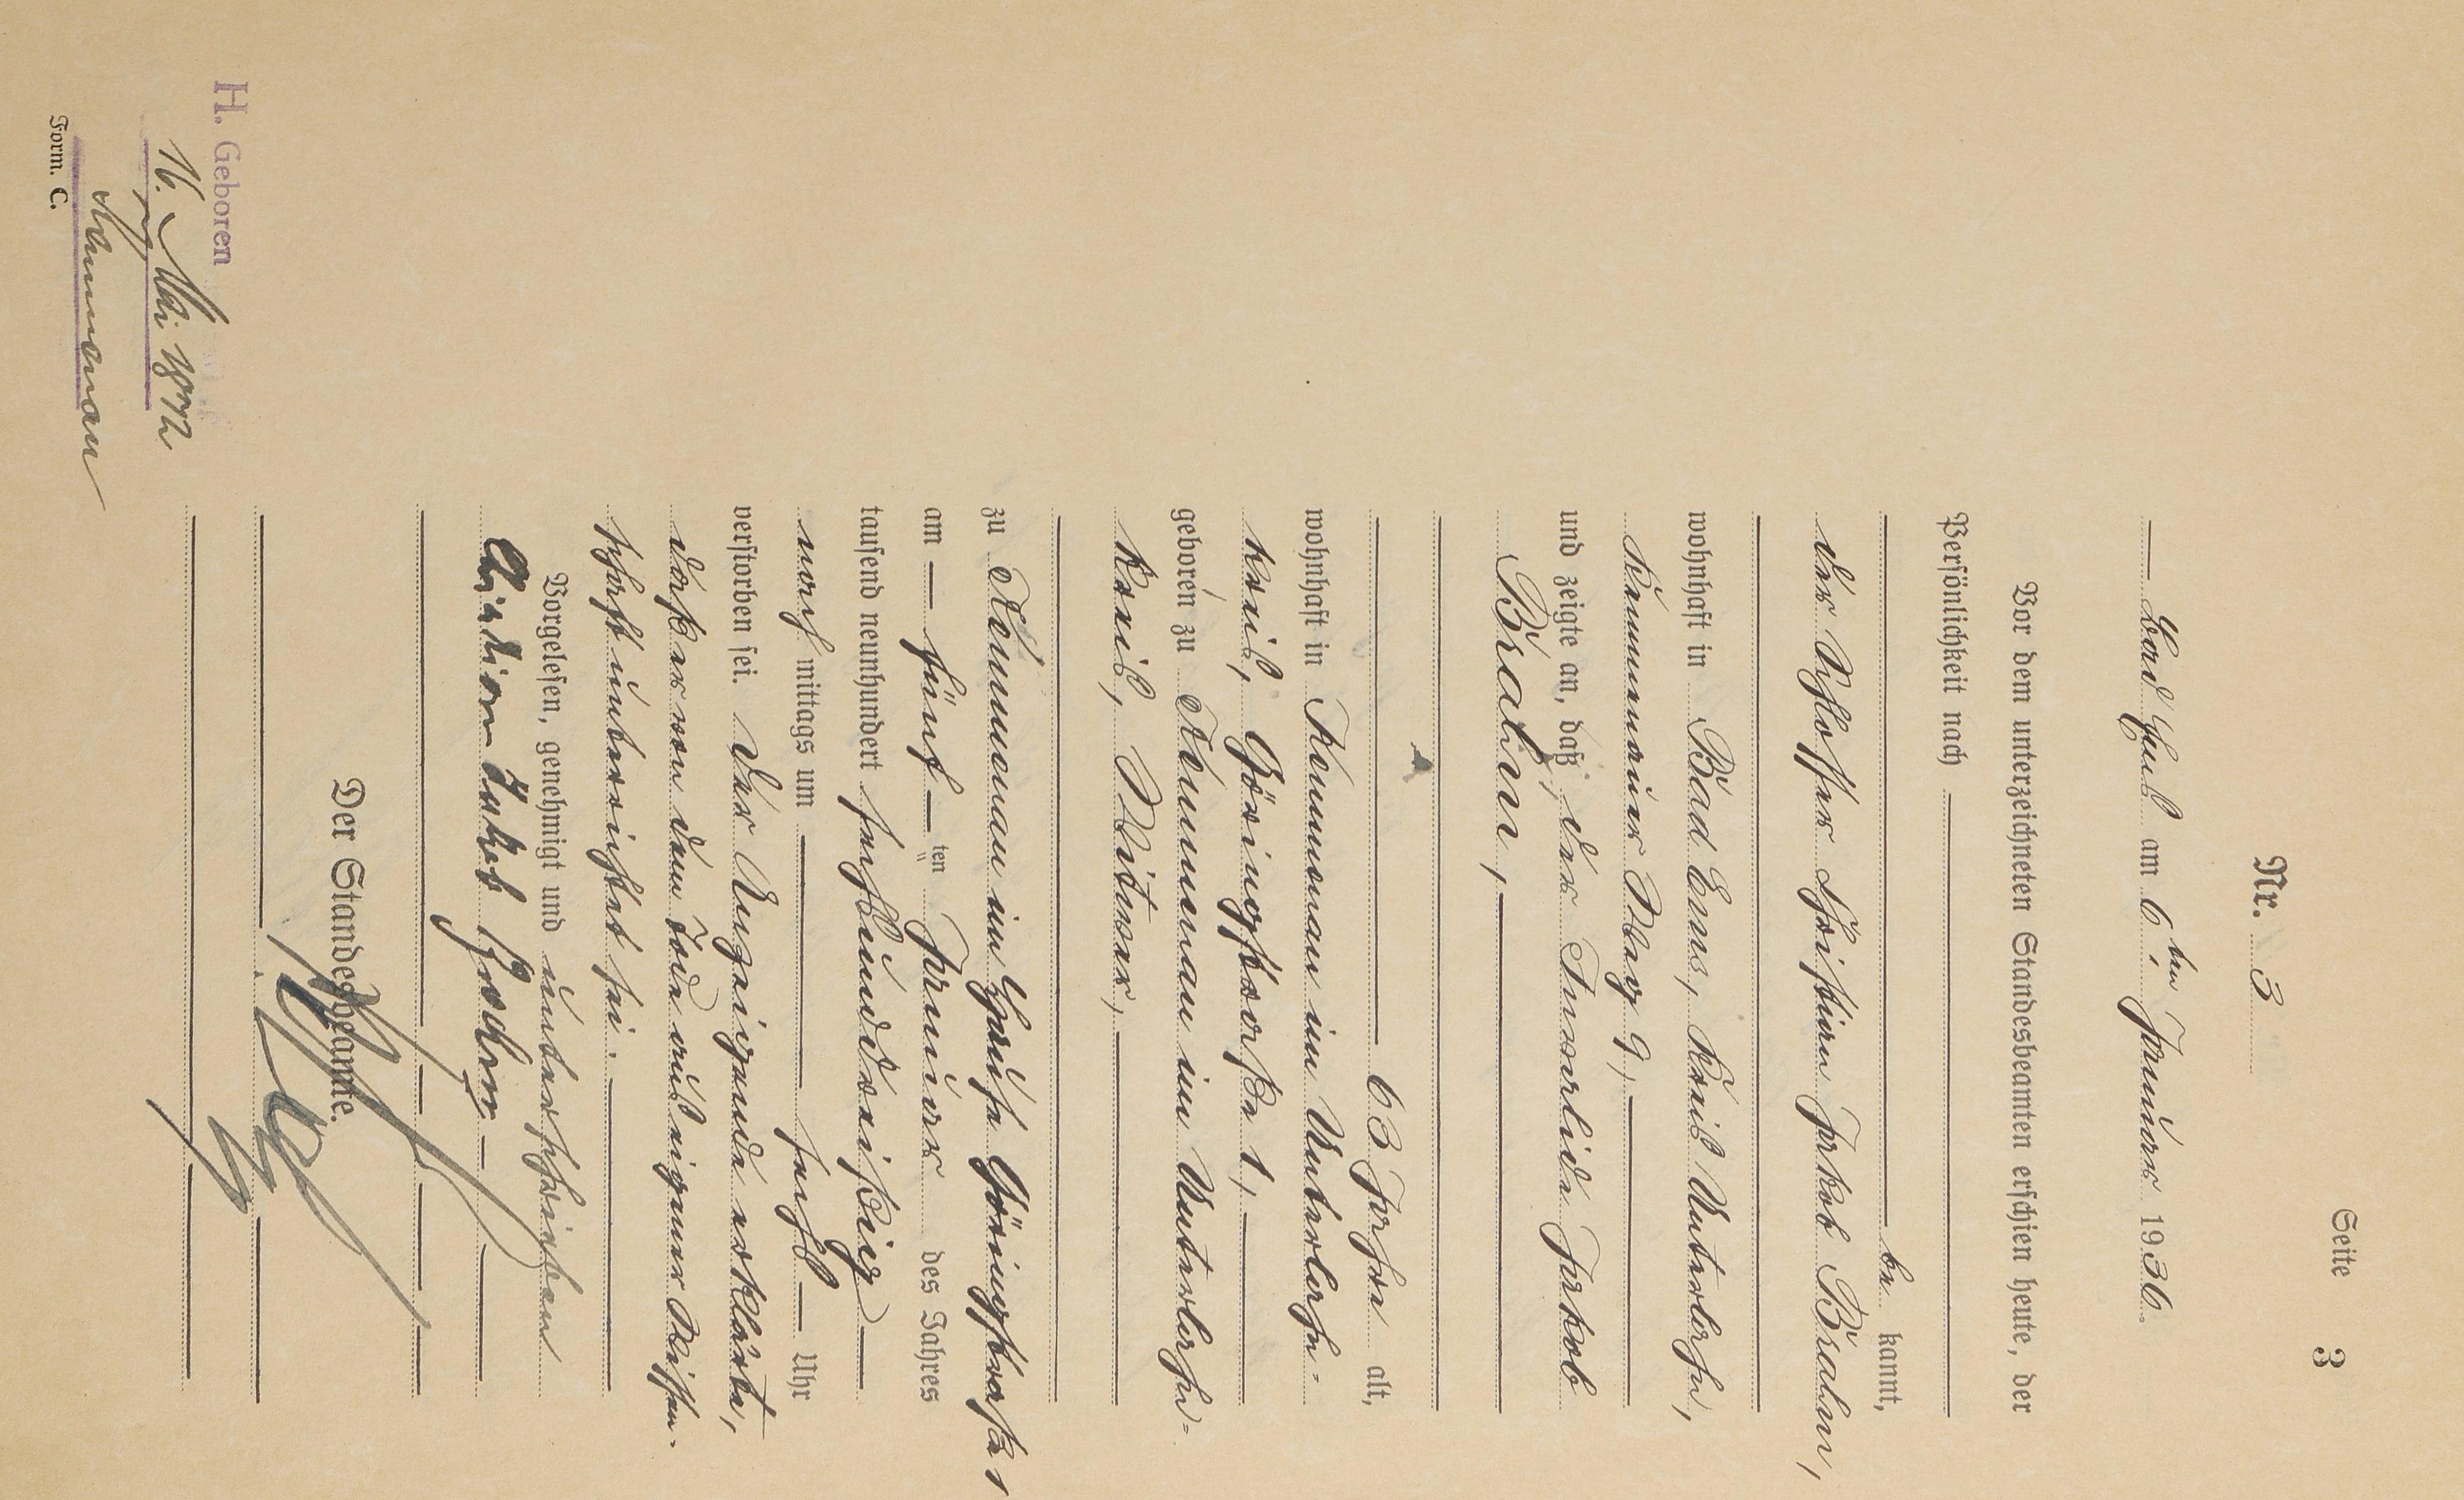 Seite 3
Nr. 3
Bad Ems am 6ten Januar 1936
Vor dem unterzeichneten Standesbeamten erschien heute, der
Persönlichkeit nach
be kannt,
der Schlosser Christian Jakob Brahm,
wohnhaft in Bad Ems, Kreis Unterlahn,
Kemmenauer Weg 9,
und zeigte an, daß der Invalide Jakob
Brahm,
63 Jahre alt,
wohnhaft in Kemmenau im Unterlahn-
kreis, Göringstraße 1,
geboren zu Kemmenau im Unterlahn-
kreis, Witwer,
zu Kemmenau im Hause Göringstraße 1
am fünf ten Januar des Jahres
tausend neunhundert sechsunddreißig
nach mittags um sechs Uhr
verstorben sei. Der Anzeigende erklärte,
daß er von dem Tode aus eigener Wissen-
schaft unterrichtet sei.
Vorgelesen, genehmigt und unterschrieben
Christian Jakob Brahm
Der Standesbeamte.
H. Geboren
16. Mai 1872
Kemmenau
Form. C.